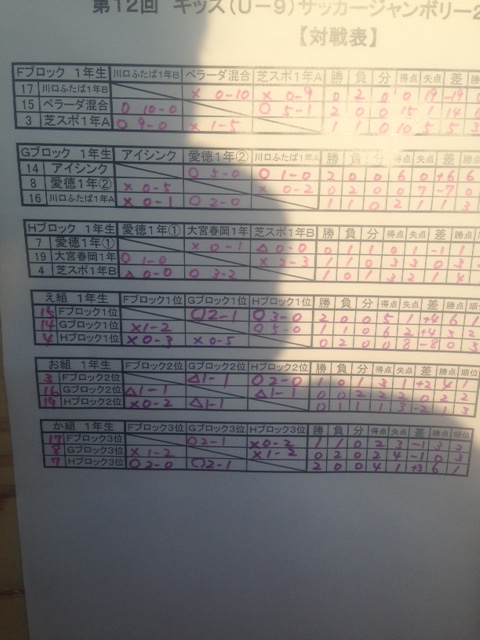 第12回 キッズ(U-9)サッカージャンボリー2
【対戦表】
Fブロック 1年生 川口ふたば1年B ベラーダ混合 芝スポ1年A 勝 負 分 得点 失点 差 勝点 順
17 川口ふたば1年B × 0-10 × 0-9 0 2 0 0 19 -19
15 ベラーダ混合 ○ 10-0 ○ 5-1 2 0 0 15 1 14 6
3 芝スポ1年A ○ 9-0 × 1-5 1 1 0 10 5 5 3
Gブロック 1年生 アイシンク 愛德1年② 川口ふたば1年A 勝 負 分 得点 失点 差 勝点
14 アイシンク ○ 5-0 ○ 1-0 2 0 0 6 0 +6 6
8 愛德1年② × 0-5 × 0-2 0 2 0 0 7 -7 0
16 川口ふたば1年A × 0-1 ○ 2-0 1 1 0 2 1 1 3
Hブロック 1年生 愛德1年① 大宮春岡1年 芝スポ1年B 勝 負 分 得点 失点 差 勝点
7 愛德1年① × 0-1 △ 0-0 0 1 1 0 1 -1
19 大宮春岡1年 ○ 1-0 × 2-3 1 1 0 3 3 0 3
4 芝スポ1年B △ 0-0 ○ 3-2 1 0 1 3 2 1 4
え組 1年生 Fブロック1位 Gブロック1位 Hブロック1位 勝 負 分 得点 失点 差 勝点 順位
15 Fブロック1位 ○ 2-1 ○ 3-0 2 0 0 5 1 +4 6 1
14 Gブロック1位 × 1-2 ○ 5-0 1 1 0 6 2 +4 3 2
4 Hブロック1位 × 0-3 × 0-5 0 2 0 0 8 -8 0 3
お組 1年生 Fブロック2位 Gブロック2位 Hブロック2位 勝 負 分 得点 失点 差 勝点 順位
3 Fブロック2位 △ 1-1 ○ 2-0 1 0 1 3 1 +2 4 1
16 Gブロック2位 △ 1-1 △ 1-1 0 0 2 2 2 0 2 2
19 Hブロック2位 × 0-2 △ 1-1 0 1 1 1 3 -2 1 3
か組 1年生 Fブロック3位 Gブロック3位 Hブロック3位 勝 負 分 得点 失点 差 勝点 順位
17 Fブロック3位 ○ 2-1 × 0-2 1 1 0 2 3 -1 3
8 Gブロック3位 × 1-2 × 1-2 0 2 0 2 4 0 3
7 Hブロック3位 ○ 2-0 ○ 2-1 2 0 0 4 1 +3 6 1